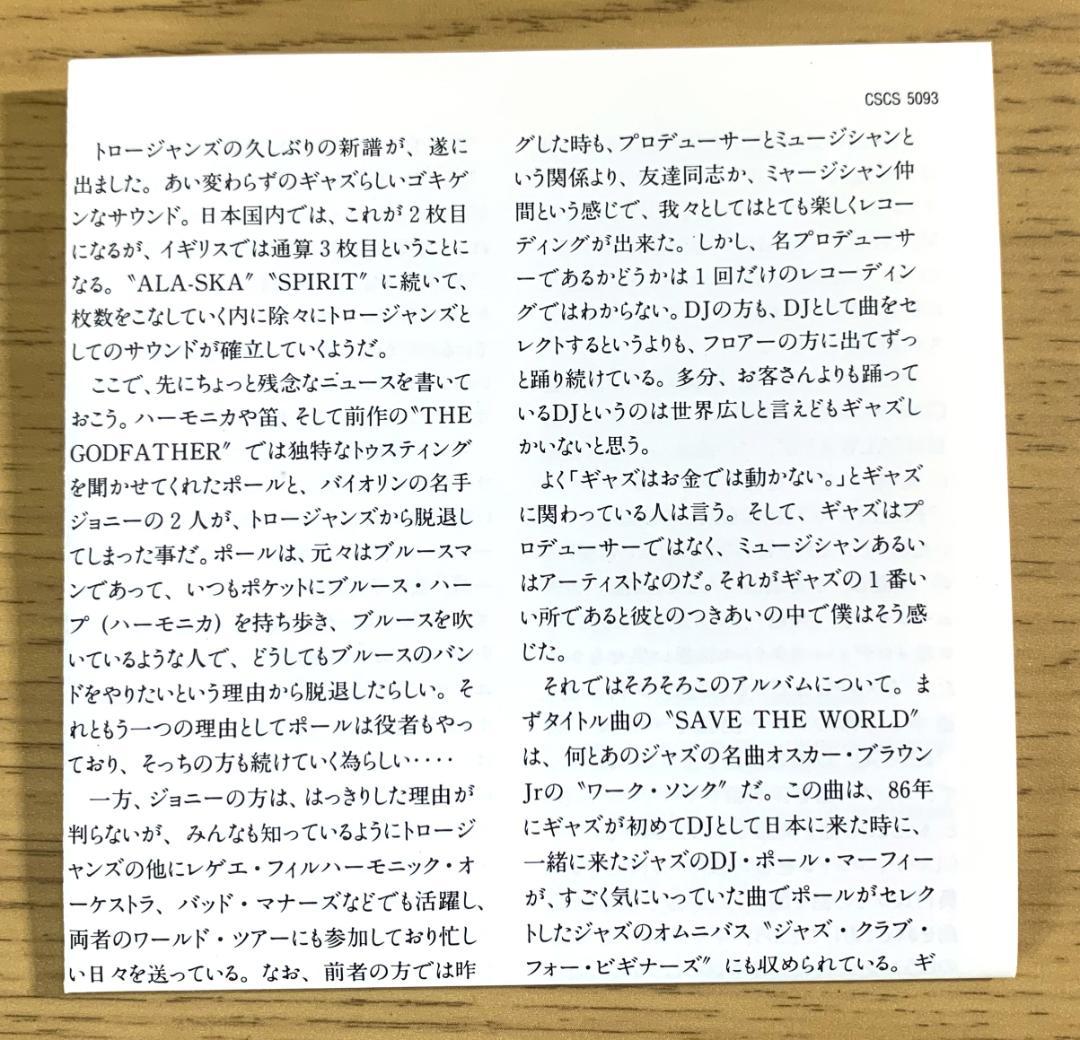 CSCS 5093
トロージャンズの久しぶりの新譜が、遂に
出ました。あい変わらずのギャズらしいゴキゲ
ンなサウンド。日本国内では、これが2枚目
になるが、イギリスでは通算3枚目ということに
なる。〝ALA-SKA〟〝SPIRIT〟に続いて、
枚数をこなしていく内に除々にトロージャンズと
してのサウンドが確立していくようだ。
ここで、先にちょっと残念なニュースを書いて
おこう。ハーモニカや笛、そして前作の〝THE
GODFATHER〟では独特なトゥスティング
を聞かせてくれたポールと、バイオリンの名手
ジョニーの2人が、トロージャンズから脱退し
てしまった事だ。ポールは、元々はブルースマ
ンであって、いつもポケットにブルース・ハー
プ(ハーモニカ)を持ち歩き、ブルースを吹
いているような人で、どうしてもブルースのバン
ドをやりたいという理由から脱退したらしい。そ
れともう一つの理由としてポールは役者もやっ
ており、そっちの方も続けていく為らしい‥‥
一方、ジョニーの方は、はっきりした理由が
判らないが、みんなも知っているようにトロージ
ャンズの他にレゲエ・フィルハーモニック・オ
ーケストラ、バッド・マナーズなどでも活躍し、
両者のワールド・ツアーにも参加しており忙し
い日々を送っている。なお、前者の方では昨
グした時も、プロデューサーとミュージシャンと
いう関係より、友達同志か、ミャージシャン仲
間という感じで、我々としてはとても楽しくレコー
ディングが出来た。しかし、名プロデューサ
ーであるかどうかは1回だけのレコーディン
グではわからない。DJの方も、DJとして曲をセ
レクトするというよりも、フロアーの方に出てずっ
と踊り続けている。多分、お客さんよりも踊って
いるDJというのは世界広しと言えどもギャズし
かいないと思う。
よく「ギャズはお金では動かない。」とギャズ
に関わっている人は言う。そして、ギャズはプ
ロデューサーではなく、ミュージシャンあるい
はアーティストなのだ。それがギャズの1番い
い所であると彼とのつきあいの中で僕はそう感
じた。
それではそろそろこのアルバムについて。ま
ずタイトル曲の〝SAVE THE WORLD〟
は、何とあのジャズの名曲オスカー・ブラウン
Jrの〝ワーク・ソング〟だ。この曲は、86年
にギャズが初めてDJとして日本に来た時に、
一緒に来たジャズのDJ・ポール・マーフィー
が、すごく気にいっていた曲でポールがセレク
トしたジャズのオムニバス〝ジャズ・クラブ・
フォー・ビギナーズ〟にも収められている。ギ